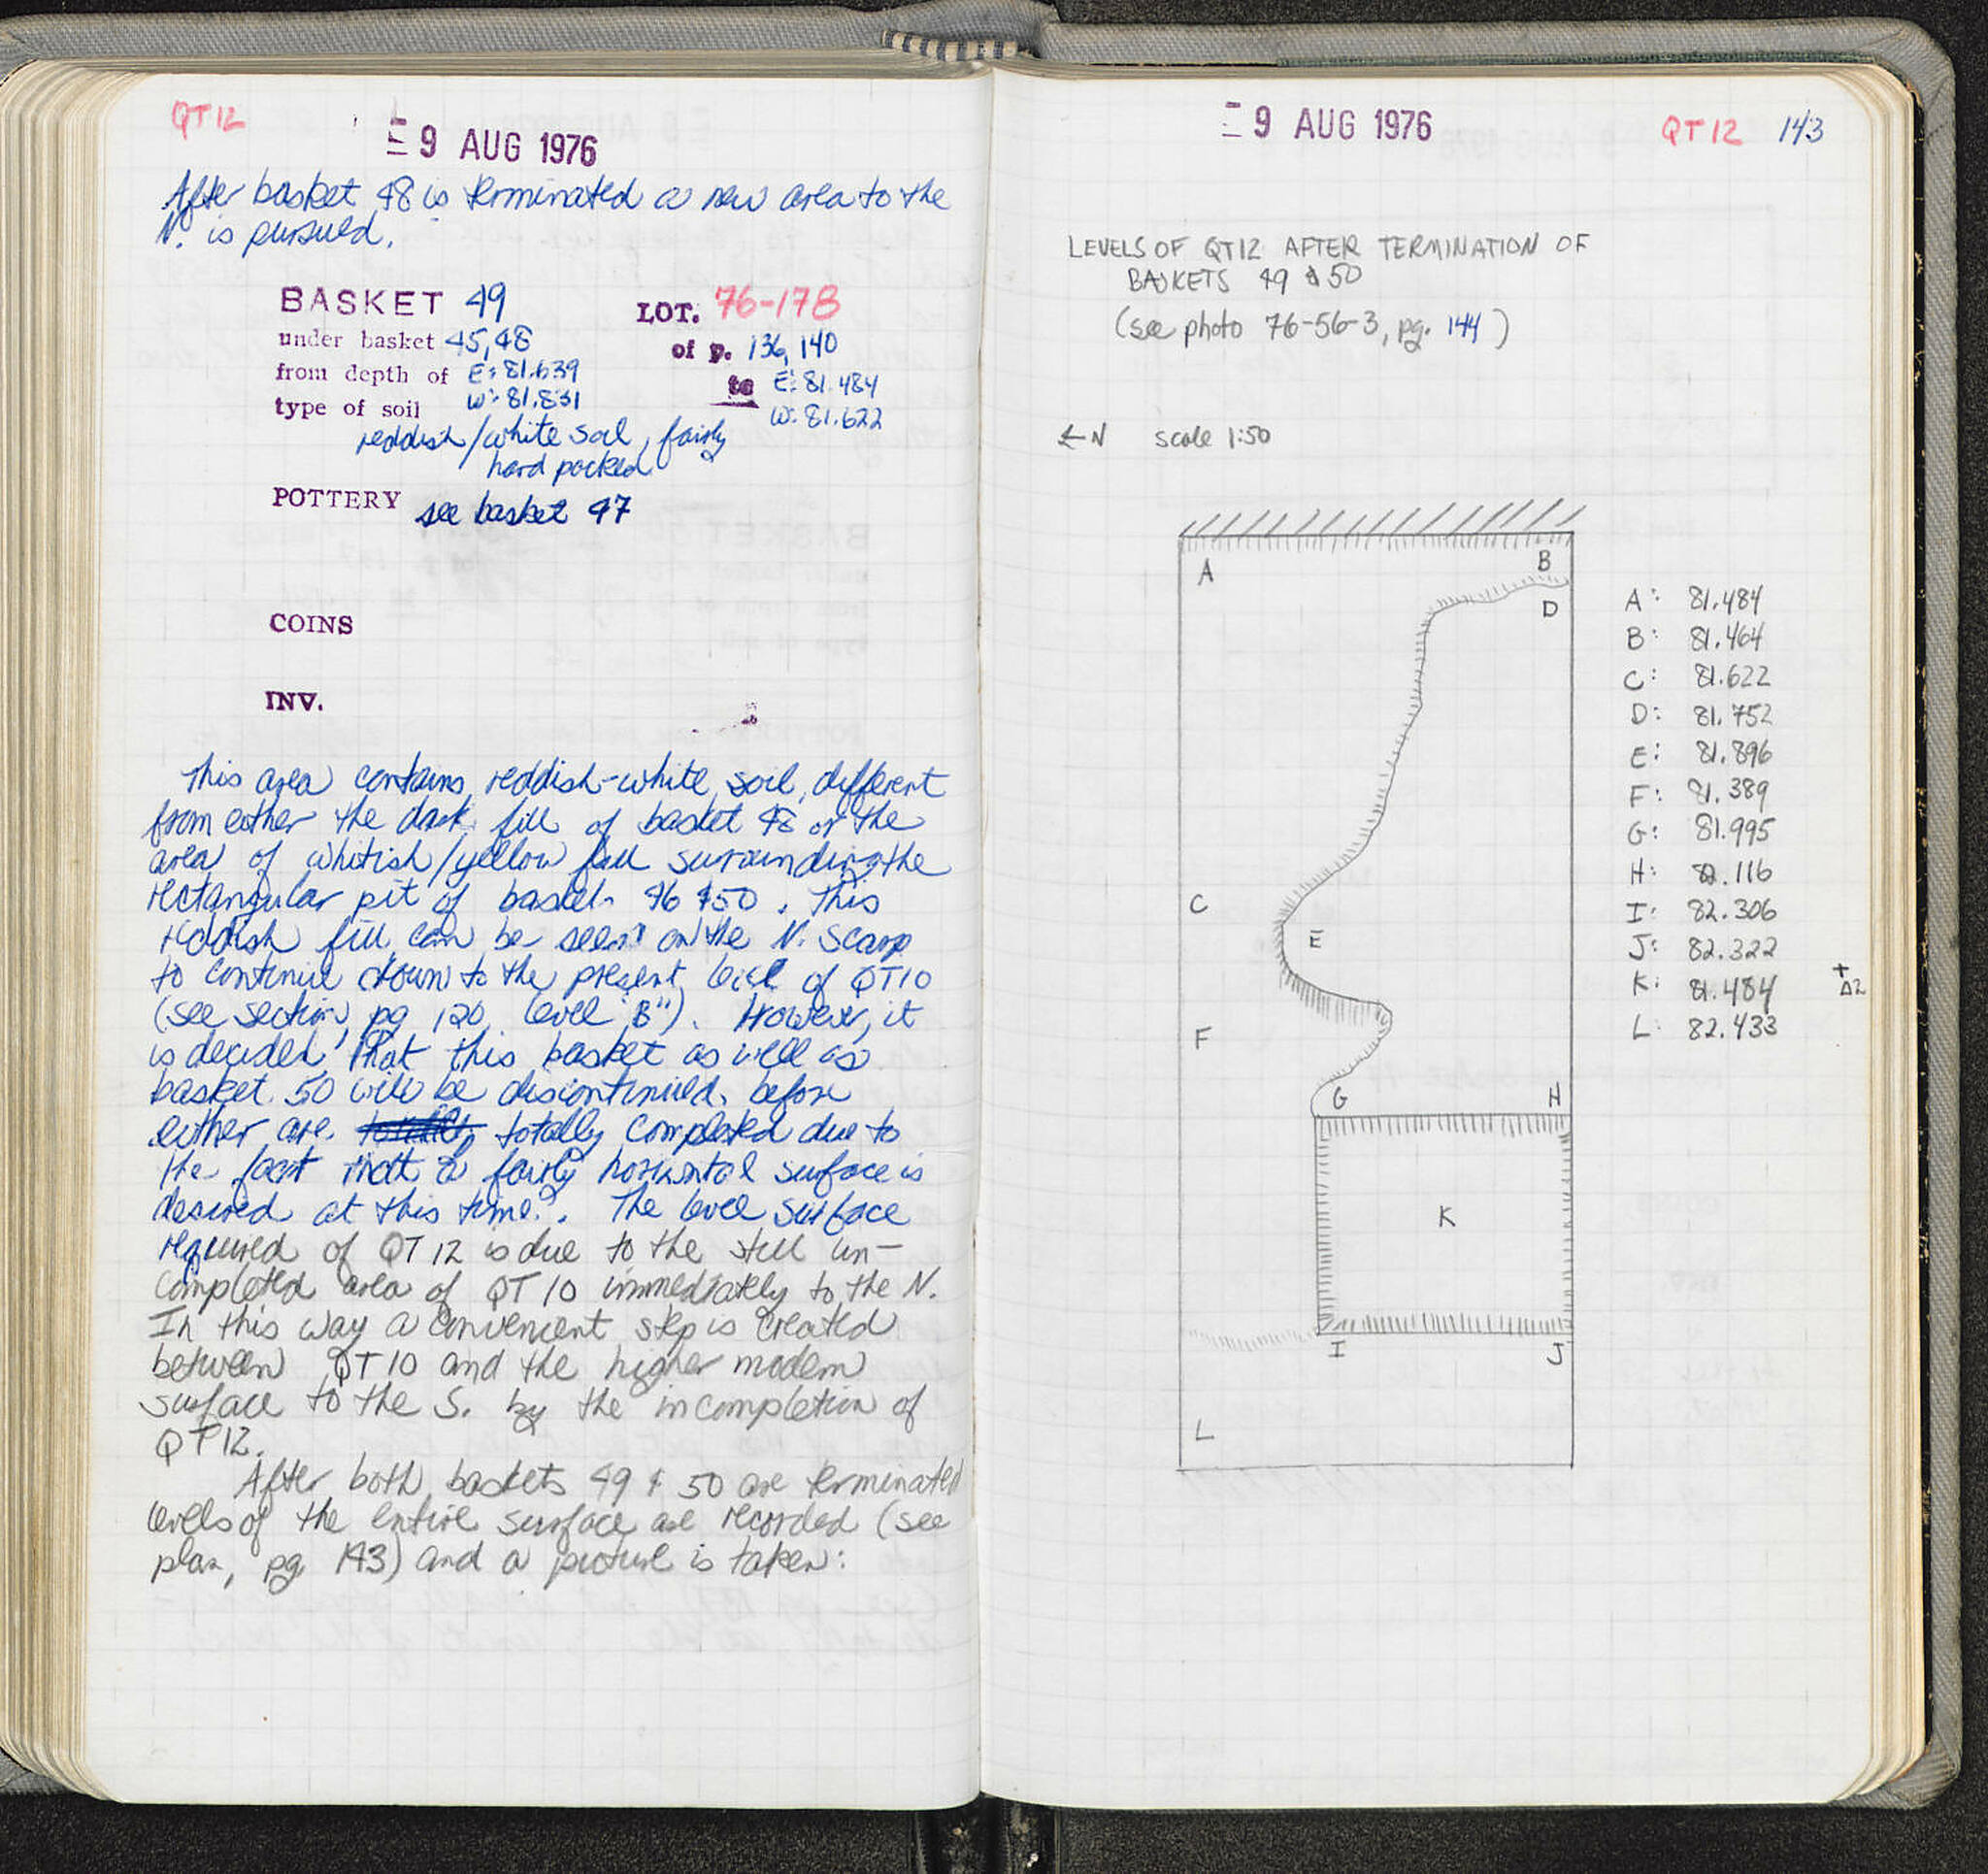 QT12
9 AUG 1976
After basket 48 is terminated a new area to the
N. is pursued.
BASKET 49 LOT. 76-178
under basket 45,48 of p. 136, 140
from depth of E: 81.639 to E: 81.484
W: 81.831 W: 81.622
type of soil
reddish/white soil, fairly
hard packed
POTTERY see basket 47
COINS
INV.
This area contains reddish-white soil, different
from either the dark fill of basket 48 or the
area of whitish/yellow fall surrounding the
rectangular pit of baskets 46 & 50. This
reddish fill can be seen on the N. scarp
to continue down to the present level of QT10
(see section, pg 120, level "B"). However, it
is decided that this basket as well as
basket 50 will be discontinued before
either are totally completed due to
the fact that a fairly horizontal surface is
desired at this time. The level surface
required of QT12 is due to the still un-
completed area of QT10 immediately to the N.
In this way a convenient step is created
between QT10 and the higher modern
surface to the S. by the incompletion of
QT12.
After both baskets 49 & 50 are terminated
levels of the entire surface are recorded (see
plan, pg 143) and a picture is taken:
9 AUG 1976
QT12 143
LEVELS OF QT12 AFTER TERMINATION OF
BASKETS 49 & 50
(see photo 76-56-3, pg. 144)
←N scale 1:50
A
B
D
C
E
F
G
H
K
I
J
L
A: 81.484
B: 81.464
C: 81.622
D: 81.752
E: 81.896
F: 81.389
G: 81.995
H: 82.116
I: 82.306
J: 82.322
K: 81.484
L: 82.433
+
Δ2